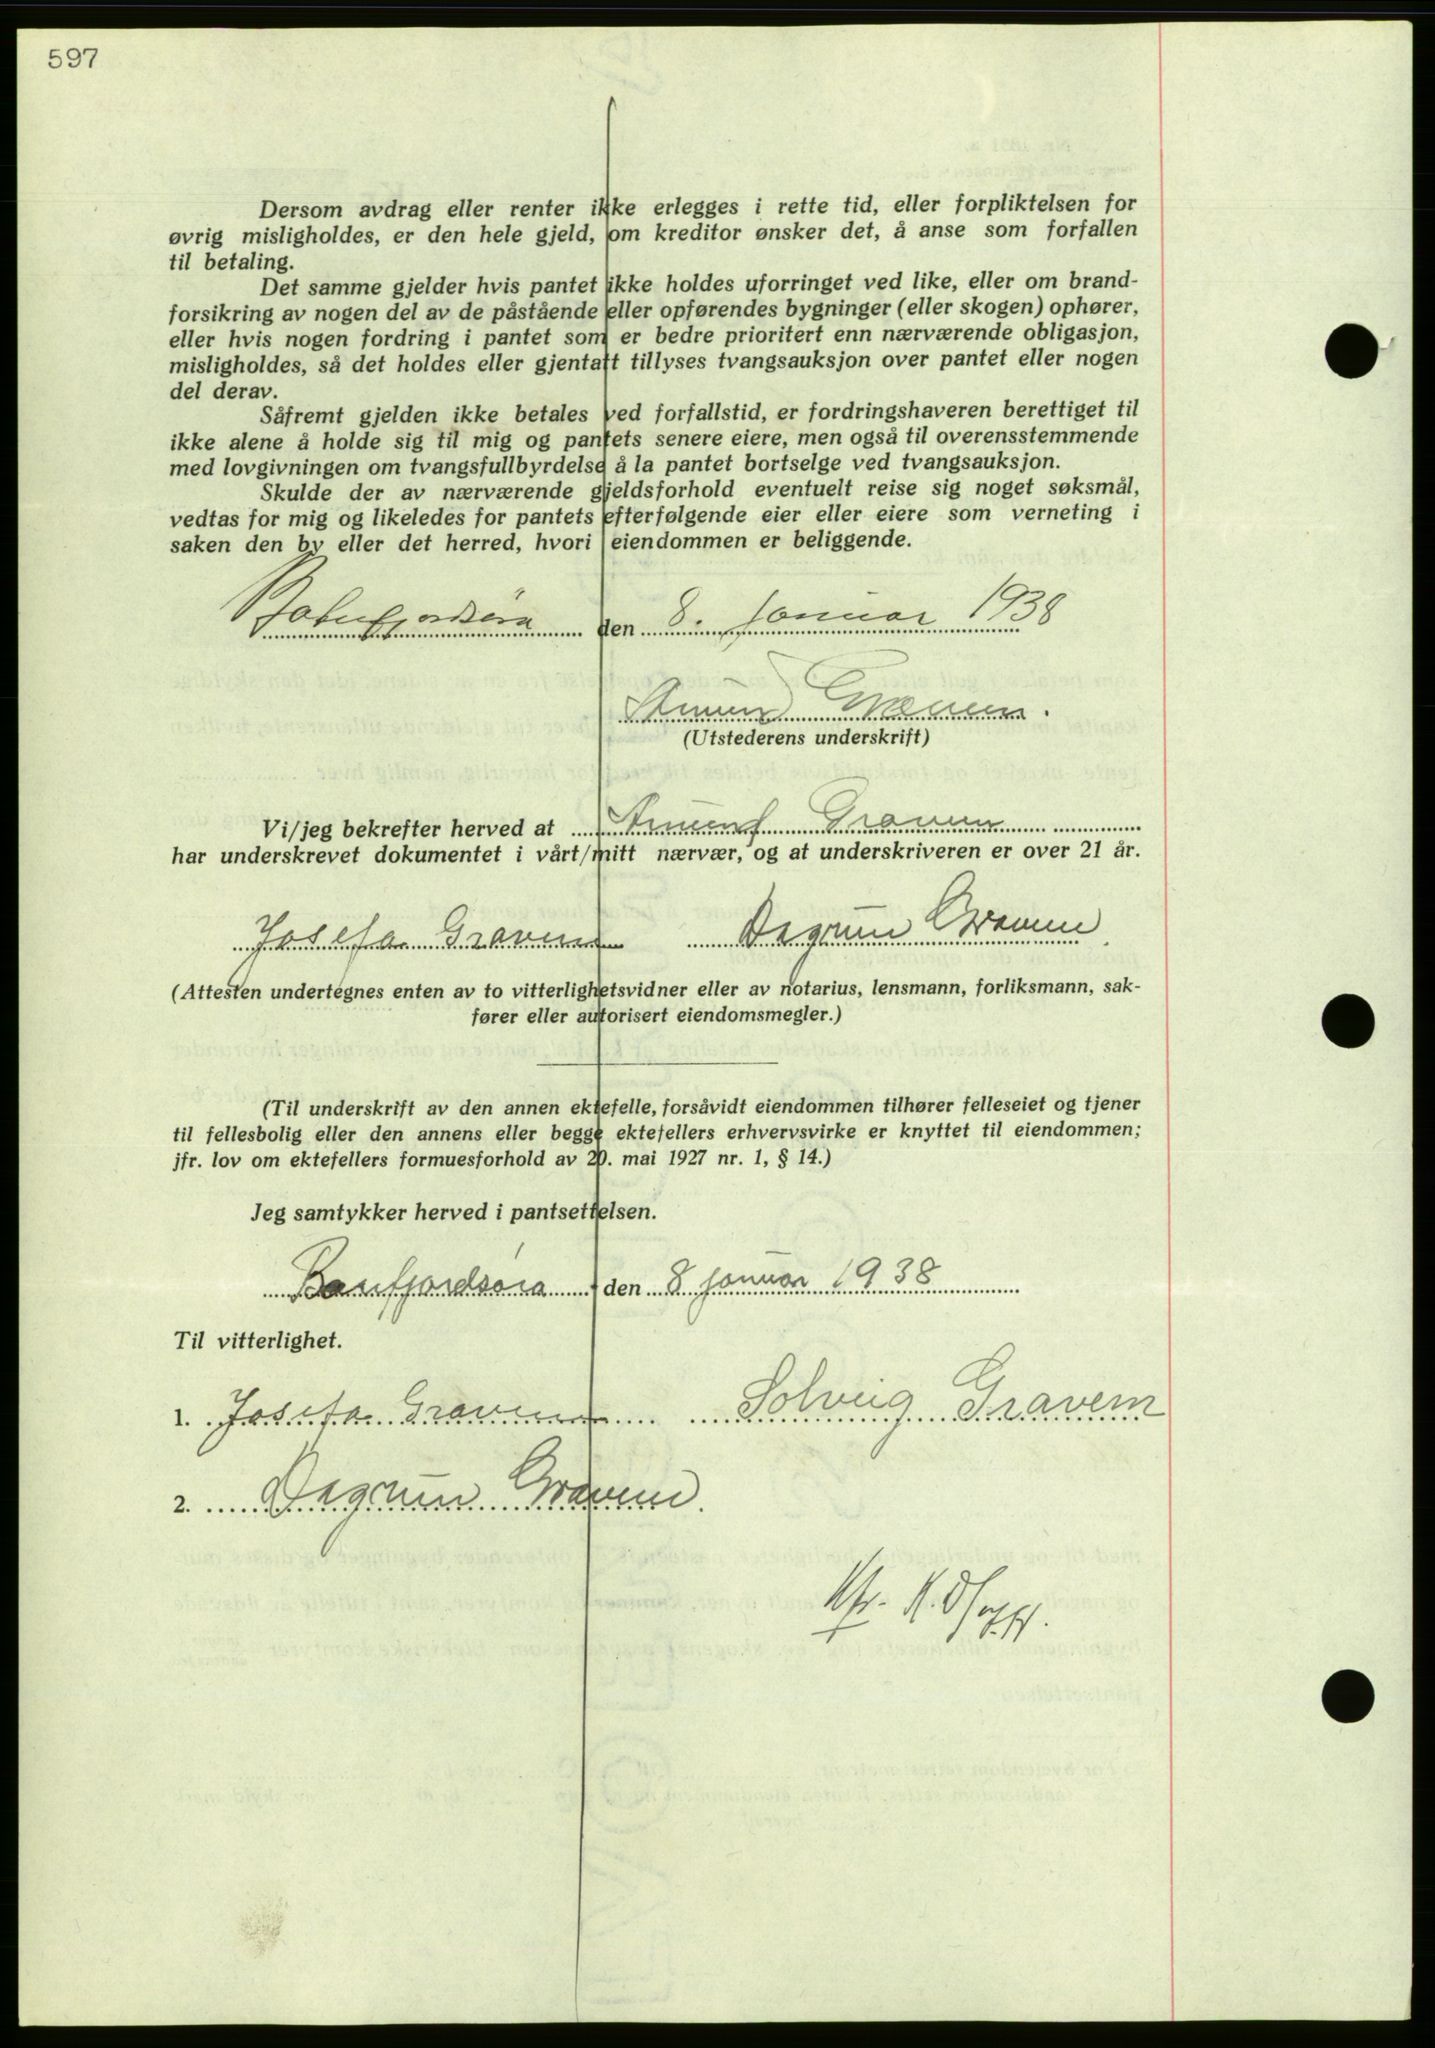 597
Dersom avdrag eller renter ikke erlegges i rette tid, eller forpliktelsen for
øvrig misligholdes, er den hele gjeld, om kreditor ønsker det, å anse som forfallen
til betaling.
Det samme gjelder hvis pantet ikke holdes uforringet ved like, eller om brand-
forsikring av nogen del av de påstående eller opførendes bygninger (eller skogen) ophører,
eller hvis nogen fordring i pantet som er bedre prioritert enn nærværende obligasjon,
misligholdes, så det holdes eller gjentatt tillyses tvangsauksjon over pantet eller nogen
del derav.
Såfremt gjelden ikke betales ved forfallstid, er fordringshaveren berettiget til
ikke alene å holde sig til mig og pantets senere eiere, men også til overensstemmende
med lovgivningen om tvangsfullbyrdelse å la pantet bortselge ved tvangsauksjon.
Skulde der av nærværende gjeldsforhold eventuelt reise sig noget søksmål,
vedtas for mig og likeledes for pantets efterfølgende eier eller eiere som verneting i
saken den by eller det herred, hvori eiendommen er beliggende.
den 8. Januar 1938
Gravem.
(Utstederens underskrift)
Vi/jeg bekrefter herved at Gravem
har underskrevet dokumentet i vårt/mitt nærvær, og at underskriveren er over 21 år.
Josefa Gravem Dagrun Gravem.
(Attesten undertegnes enten av to vitterlighetsvidner eller av notarius, lensmann, forliksmann, sak-
fører eller autorisert eiendomsmegler.)
(Til underskrift av den annen ektefelle, forsåvidt eiendommen tilhører felleseiet og tjener
til fellesbolig eller den annens eller begge ektefellers erhvervsvirke er knyttet til eiendommen;
jfr. lov om ektefellers formuesforhold av 20. mai 1927 nr. 1, § 14.)
Jeg samtykker herved i pantsettelsen.
Batnfjordsøra den 8 januar 1938
Til vitterlighet.
1. Josefa Gravem Solveig Gravem
2. Dagrun Gravem.